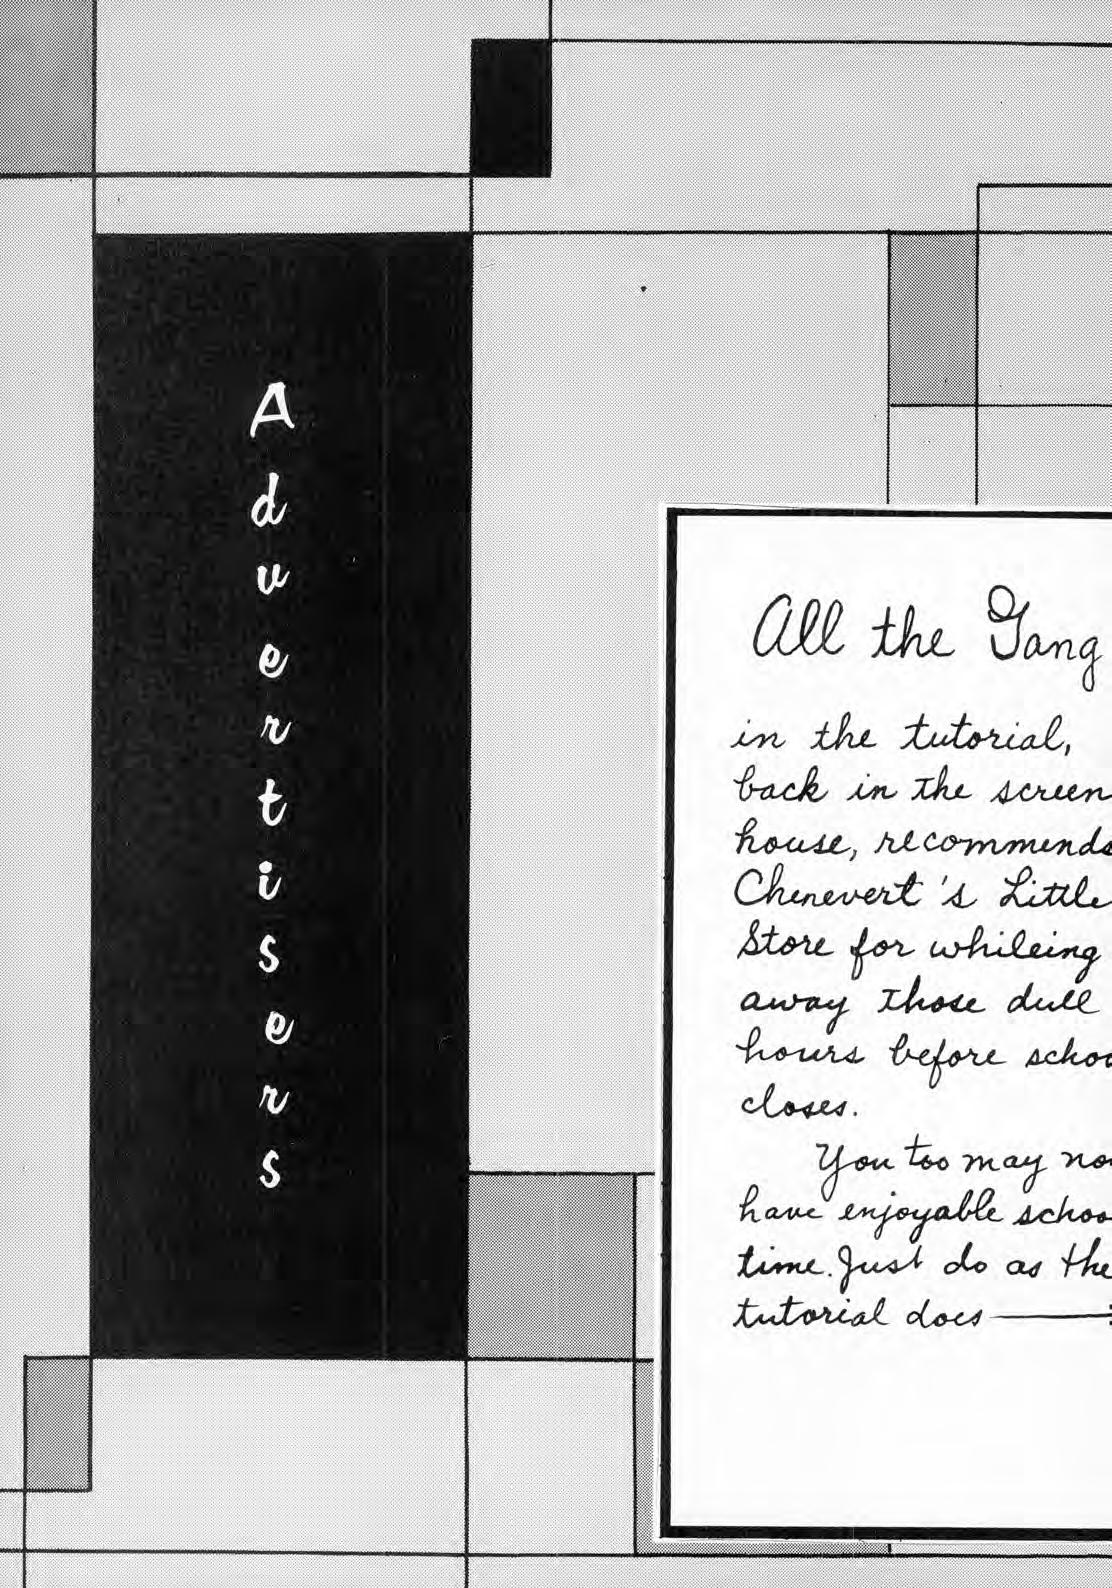 Advertisers
All the Gang
in the tutorial,
back in the screen
house, recommends
Chenevert's Little
Store for whileing
away those dull
hours before schoo
closes.
You too may no
have enjoyable schoo
time. Just do as the
tutorial does